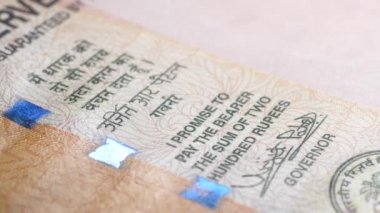 SERVE
GUARANTEED BY
मैं धारक को
दो सौ रुपये
अदा करने का
वचन देता हूँ ।
उर्जित आर पटेल
गवर्नर
I PROMISE TO
PAY THE BEARER
THE SUM OF TWO
HUNDRED RUPEES
GOVERNOR